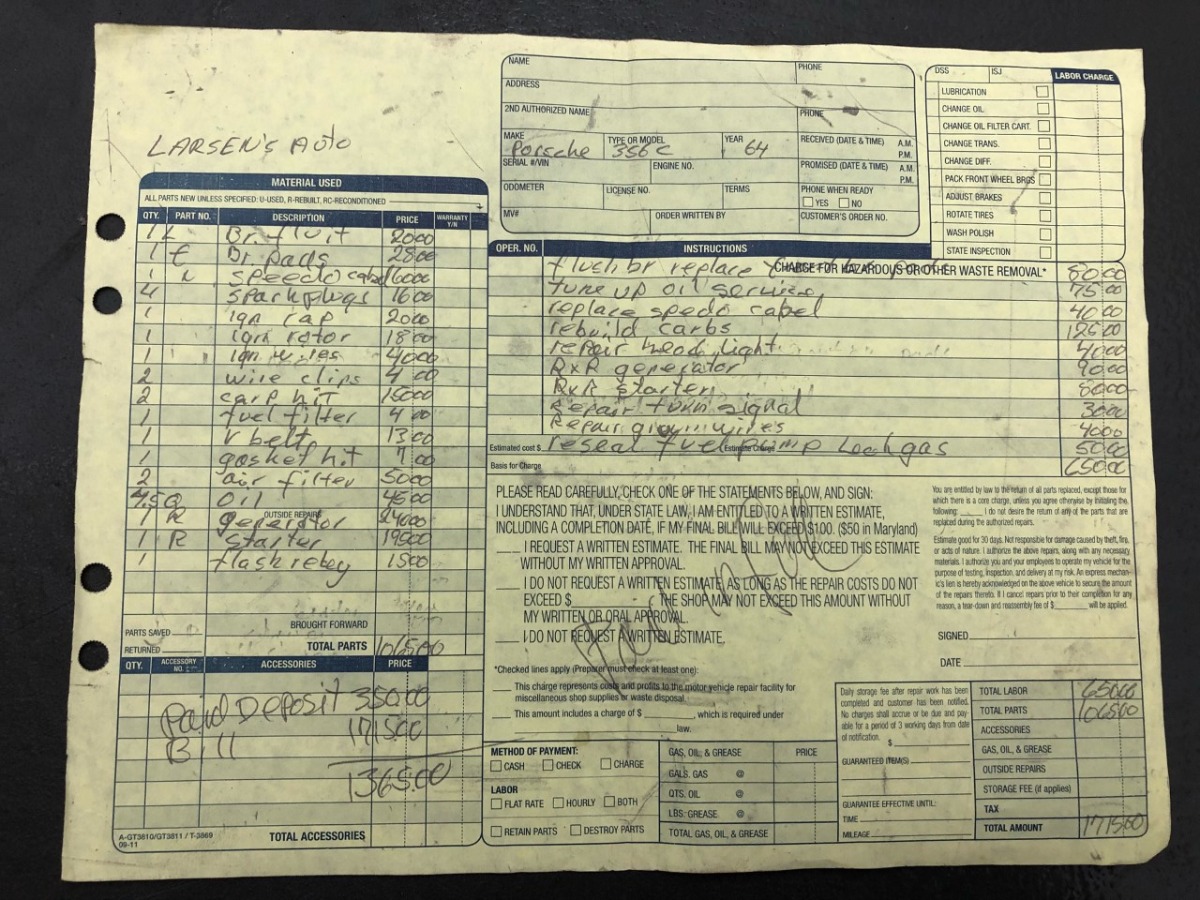 LARSEN'S Auto
MATERIAL USED
ALL PARTS NEW UNLESS SPECIFIED: U-USED, R-REBUILT, RC-RECONDITIONED
QTY. PART NO. DESCRIPTION PRICE WARRANTY Y/N
1 Br. fluit 2000
1 Br. pads 2800
1 N speedo cabel 6000
4 sparkplugs 1600
1 ign cap 2000
1 ign rotor 1800
1 ign wires 4000
2 wire clips 4 00
2 carp kit 15000
1 fuel filter 4 00
1 V belt 13 00
1 gasket kit 7 00
2 air filter 5000
4,5Q Oil 4500
OUTSIDE REPAIRS
1 R generator 24000
1 R starter 19500
1 flash reley 1500
BROUGHT FORWARD
PARTS SAVED
RETURNED
TOTAL PARTS 106500
QTY. ACCESSORY NO. ACCESSORIES PRICE
Paid Deposit 350.00
Bill 1715.00
1365.00
A-GT3810/GT3811 / T-3869
09-11
TOTAL ACCESSORIES
NAME PHONE
ADDRESS
2ND AUTHORIZED NAME PHONE
MAKE Porsche TYPE OR MODEL 356 C YEAR 64 RECEIVED (DATE & TIME) A.M. P.M.
SERIAL #/VIN ENGINE NO. PROMISED (DATE & TIME) A.M. P.M.
ODOMETER LICENSE NO. TERMS PHONE WHEN READY
YES NO
MV# ORDER WRITTEN BY CUSTOMER'S ORDER NO.
DSS ISJ LABOR CHARGE
LUBRICATION
CHANGE OIL
CHANGE OIL FILTER CART.
CHANGE TRANS.
CHANGE DIFF.
PACK FRONT WHEEL BRGS
ADJUST BRAKES
ROTATE TIRES
WASH POLISH
STATE INSPECTION
OPER. NO. INSTRUCTIONS
CHARGE FOR HAZARDOUS OR OTHER WASTE REMOVAL*
flush br replace 8000
tune up oil service 75 00
replace spedo cabel 4000
rebuild carbs 12500
repair head light 4000
RxR generator 9000
RxR starter 8000
Repair turn signal 3000
Repair wires 4000
Estimated cost $ Estimate Charge
reseal fuel pump Leak gas 5000
Basis for Charge 65000
PLEASE READ CAREFULLY, CHECK ONE OF THE STATEMENTS BELOW, AND SIGN:
I UNDERSTAND THAT, UNDER STATE LAW, I AM ENTITLED TO A WRITTEN ESTIMATE,
INCLUDING A COMPLETION DATE, IF MY FINAL BILL WILL EXCEED $100. ($50 in Maryland)
I REQUEST A WRITTEN ESTIMATE. THE FINAL BILL MAY NOT EXCEED THIS ESTIMATE
WITHOUT MY WRITTEN APPROVAL.
I DO NOT REQUEST A WRITTEN ESTIMATE, AS LONG AS THE REPAIR COSTS DO NOT
EXCEED $ THE SHOP MAY NOT EXCEED THIS AMOUNT WITHOUT
MY WRITTEN OR ORAL APPROVAL.
I DO NOT REQUEST A WRITTEN ESTIMATE.
Paid in full
*Checked lines apply (Preparer must check at least one):
This charge represents costs and profits to the motor vehicle repair facility for
miscellaneous shop supplies or waste disposal.
This amount includes a charge of $ , which is required under
law.
You are entitled by law to the return of all parts replaced, except those for
which there is a core charge, unless you agree otherwise by initialing the
following: I do not desire the return of any of the parts that are
replaced during the authorized repairs.
Estimate good for 30 days. Not responsible for damage caused by theft, fire,
or acts of nature. I authorize the above repairs, along with any necessary
materials. I authorize you and your employees to operate my vehicle for the
purpose of testing, inspection, and delivery at my risk. An express mechan-
ic's lien is hereby acknowledged on the above vehicle to secure the amount
of the repairs thereto. If I cancel repairs prior to their completion for any
reason, a tear-down and reassembly fee of $ will be applied.
SIGNED
DATE
METHOD OF PAYMENT:
CASH CHECK CHARGE
LABOR
FLAT RATE HOURLY BOTH
RETAIN PARTS DESTROY PARTS
GAS, OIL, & GREASE PRICE
GALS. GAS @
QTS. OIL @
LBS. GREASE @
TOTAL GAS, OIL, & GREASE
Daily storage fee after repair work has been
completed and customer has been notified.
No charges shall accrue or be due and pay-
able for a period of 3 working days from date
of notification.
$
GUARANTEED ITEM(S)
GUARANTEE EFFECTIVE UNTIL:
TIME
MILEAGE
TOTAL LABOR 65000
TOTAL PARTS 106500
ACCESSORIES
GAS, OIL, & GREASE
OUTSIDE REPAIRS
STORAGE FEE (if applies)
TAX
TOTAL AMOUNT 171500